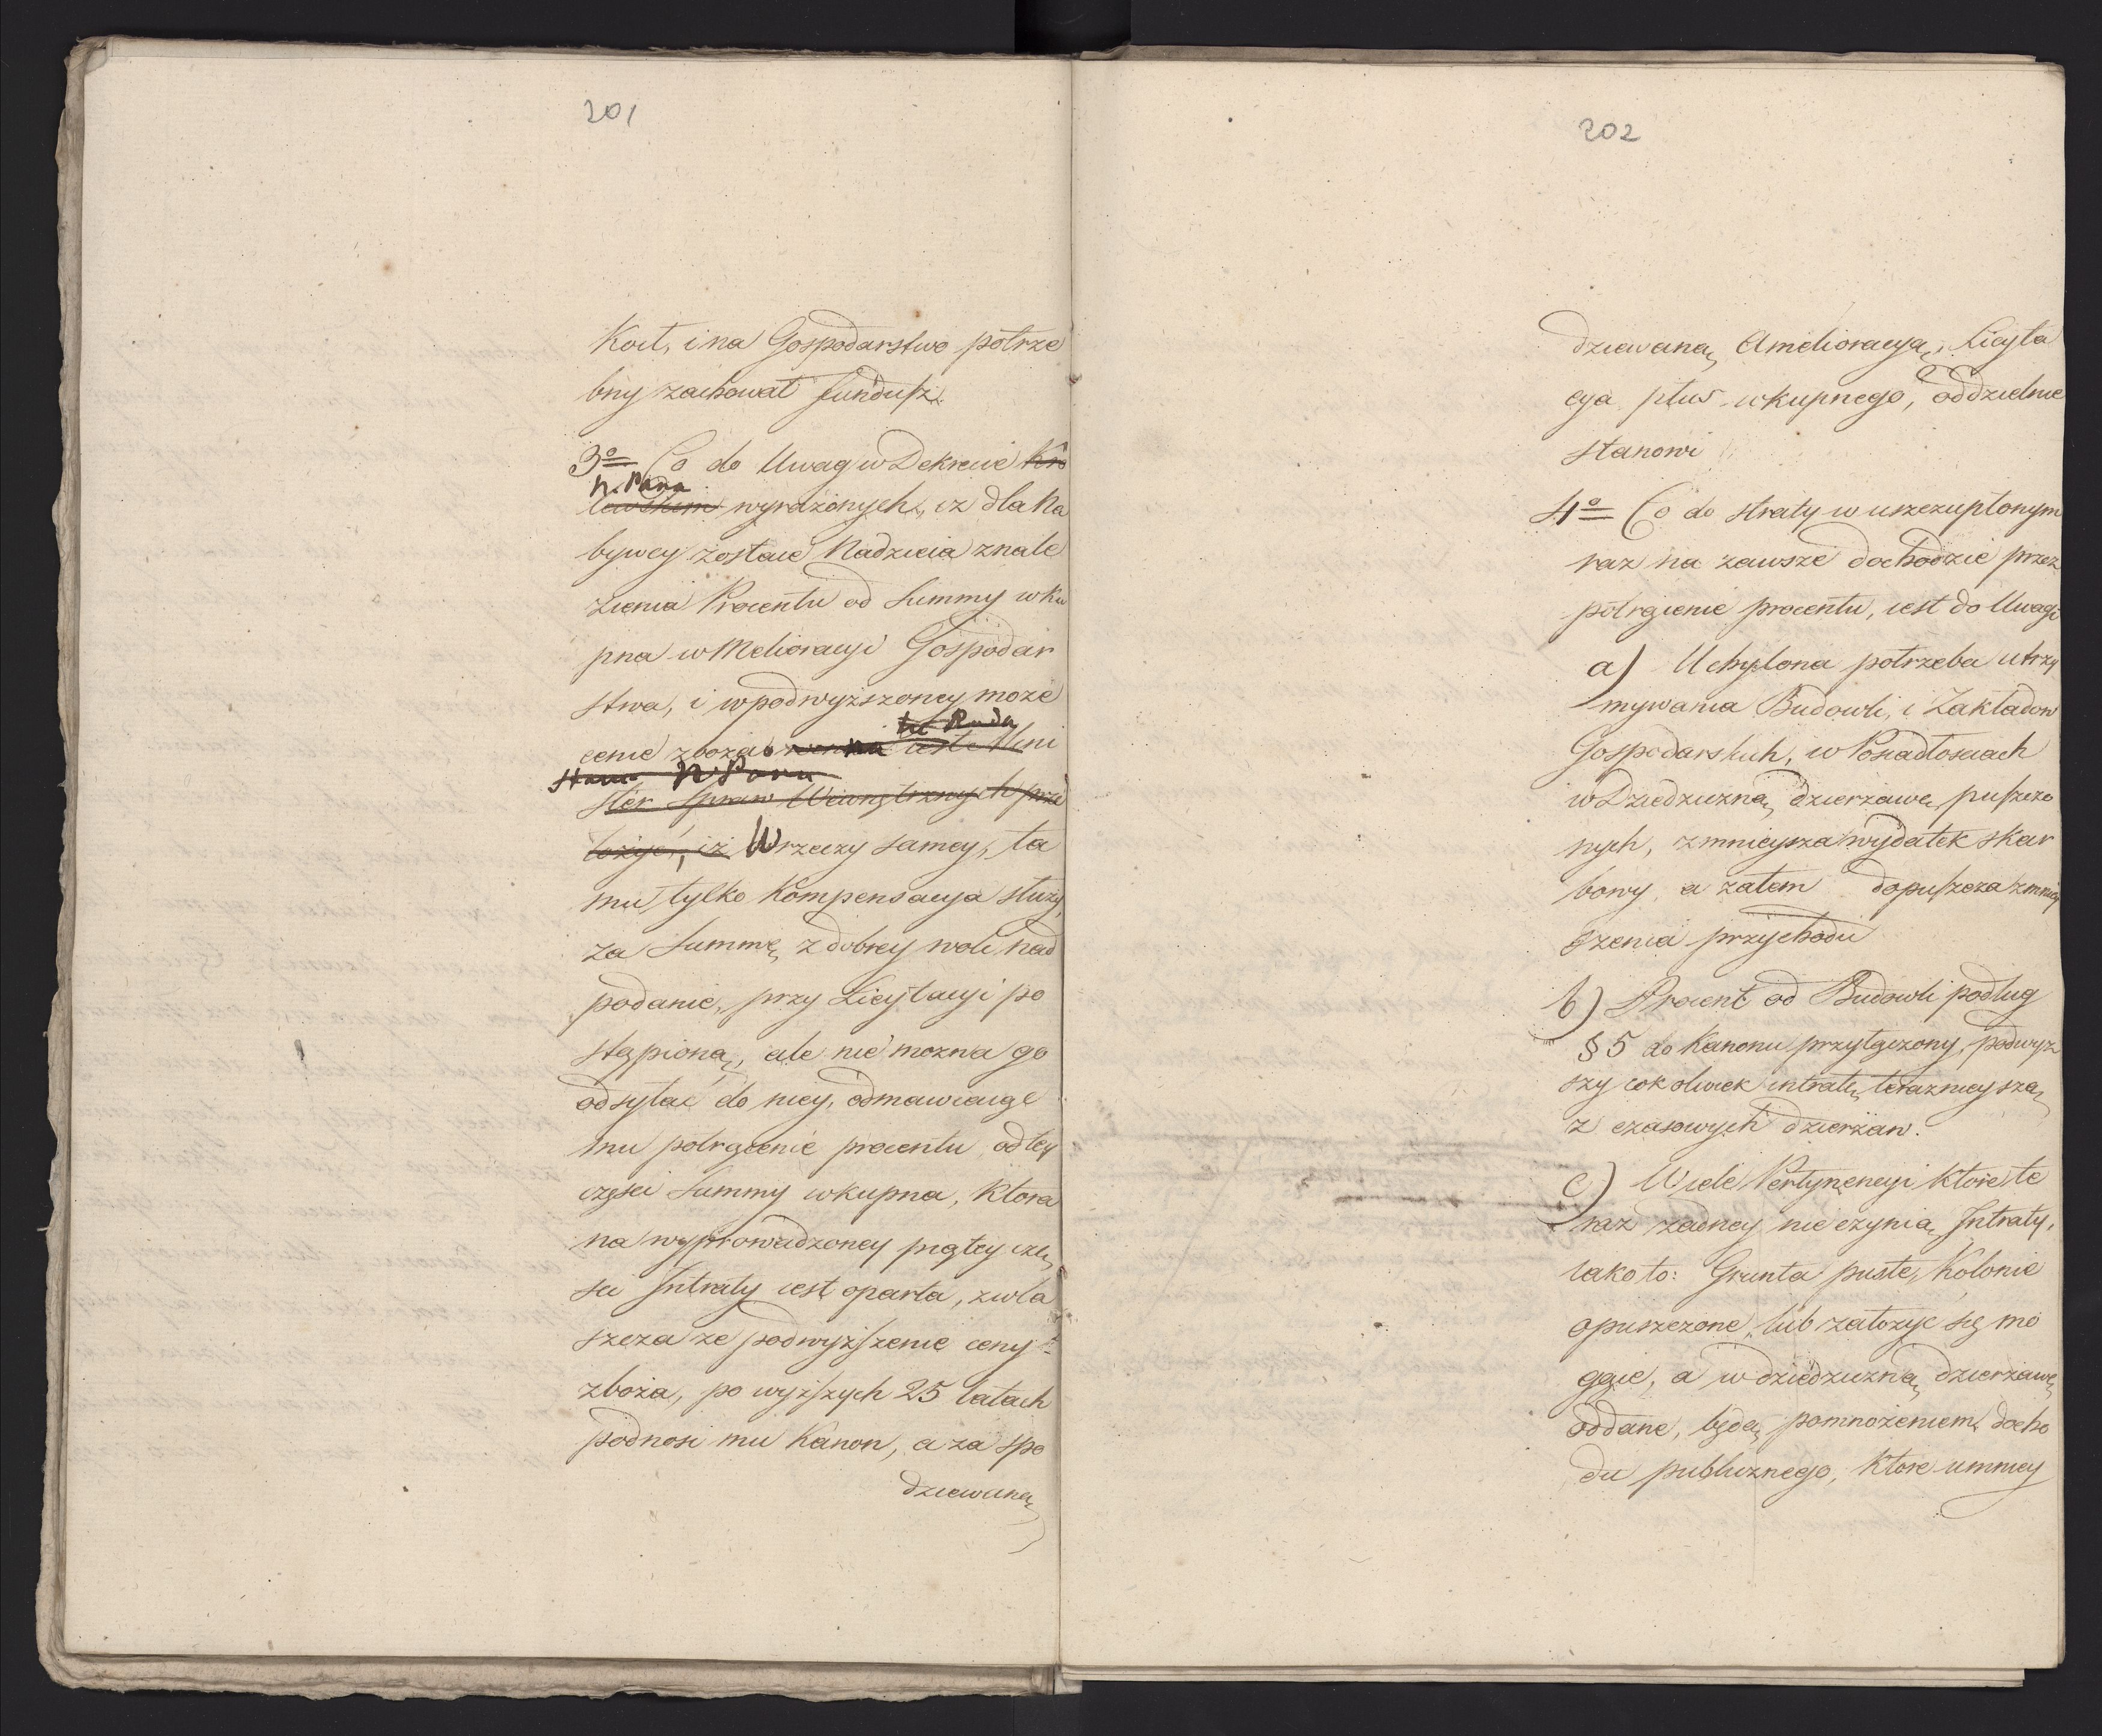 201
koił, i na Gospodarstwo potrze
bny zachował fundusz.
3o Co do Uwag w Dekrecie Kró
N. Pana
lewskim wyrażonych, iż dla Na
bywcy zostaie Nadzieia znale
zienia Procentu od Summy wku
pna w Melioracyi Gospodar
stwa, i w podwyższoney może
Rada
cenie zboża iest Mini
Stanu N. Panu
ster Spraw Wewnętrznych prze
łożyć, iż W rzeczy samey, ta
mu tylko Kompensacya służy,
za Summę z dobrey woli nad
podanie, przy Licytacyi po
stąpioną, ale nie można go
odsyłać do niey, odmawiaiąc
mu potrącenie procentu od tey
części Summy wkupna, która
na wyprowadzoney piątey czę
ści Intraty iest oparta, zwła
szcza że podwyższenie ceny
zboża, po wyższych 25 latach
podnosi mu Kanon, a za spo
dziewaną
202
dziewaną Amelioracyą, Licyta
cya plus wkupnego, oddzielnie
stanowi
4o Co do straty w uszczuplonym
raz na zawsze dochodzie przez
potrącenie procentu, iest do Uwagi
a) Uchylona potrzeba utrzy
mywania Budowli, i Zakładow
Gospodarskich, w Posiadłościach
w Dziedziczną dzierżawę puszczo
nych, zmnieysza wydatek skar
bowy, a zatem dopuszcza zmniey
szenia przychodu
b) Procent od Budowli podług
§ 5 do Kanonu przyłączony, podwyż
szy cokolwiek intratę terazniey szą
z czasowych dzierżaw.
c) Wiele Pertynencyi które te
raz żadney nie czynią Intraty,
iako to: Grunta puste, Kolonie
opuszczone, lub założyć się mo
gące, a w dziedziczną dzierżawę
oddane, będą pomnożeniem docho
du publicznego, które umniey